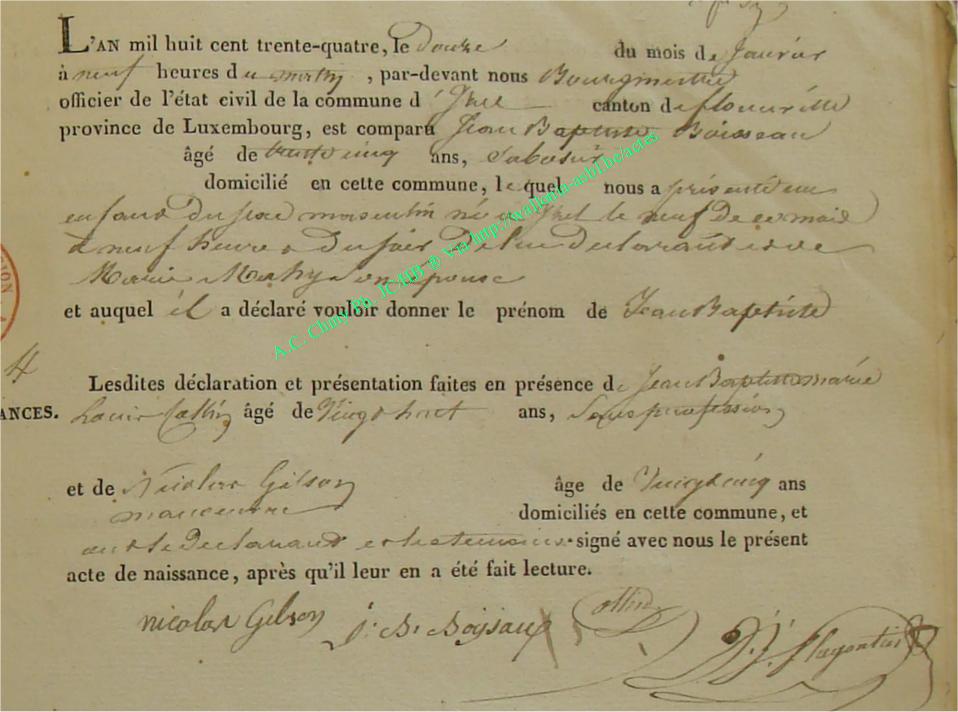 L'AN mil huit cent trente-quatre, le douze du mois de Janvier
à neuf heures du matin, par-devant nous Bourgmestre
officier de l'état civil de la commune d'Izel canton de florenville
province de Luxembourg, est comparu Jean Baptiste Boisseau
âgé de trente cinq ans, Sabotier
domicilié en cette commune, lequel nous a présenté un
enfant du sexe masculin né à Izel le neuf de ce mois
à neuf heures du soir de lui declarant et de
Marie Mathy son épouse
et auquel il a déclaré vouloir donner le prénom de Jean Baptiste
4
Lesdites déclaration et présentation faites en présence de Jean Baptiste marie
ANCES. Louis Collin âgé de Vingt huit ans, Sans profession
et de Nicolas Gilson âge de Vingt cinq ans
manoeuvre domiciliés en cette commune, et
le declarant et les temoins signé avec nous le présent
acte de naissance, après qu'il leur en a été fait lecture.
nicolas Gilson J. B. Boijsau ollin
A.C. Chiny Ph. JC HB ® Via http://wallonia-asbl.be/actes